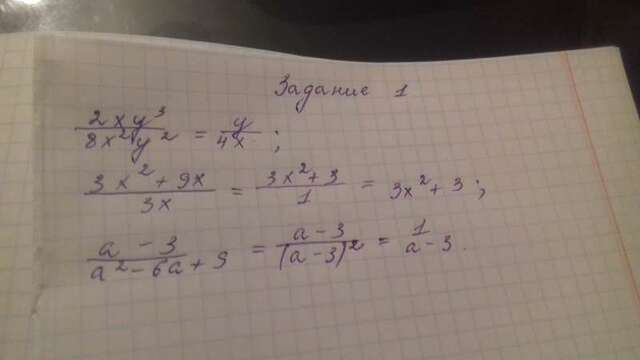 Задание 1
2xy³/8x²y² = y/4x;
3x² + 9x/3x = 3x² + 3/1 = 3x² + 3;
a - 3/a² - 6a + 9 = a - 3/(a - 3)² = 1/a - 3.